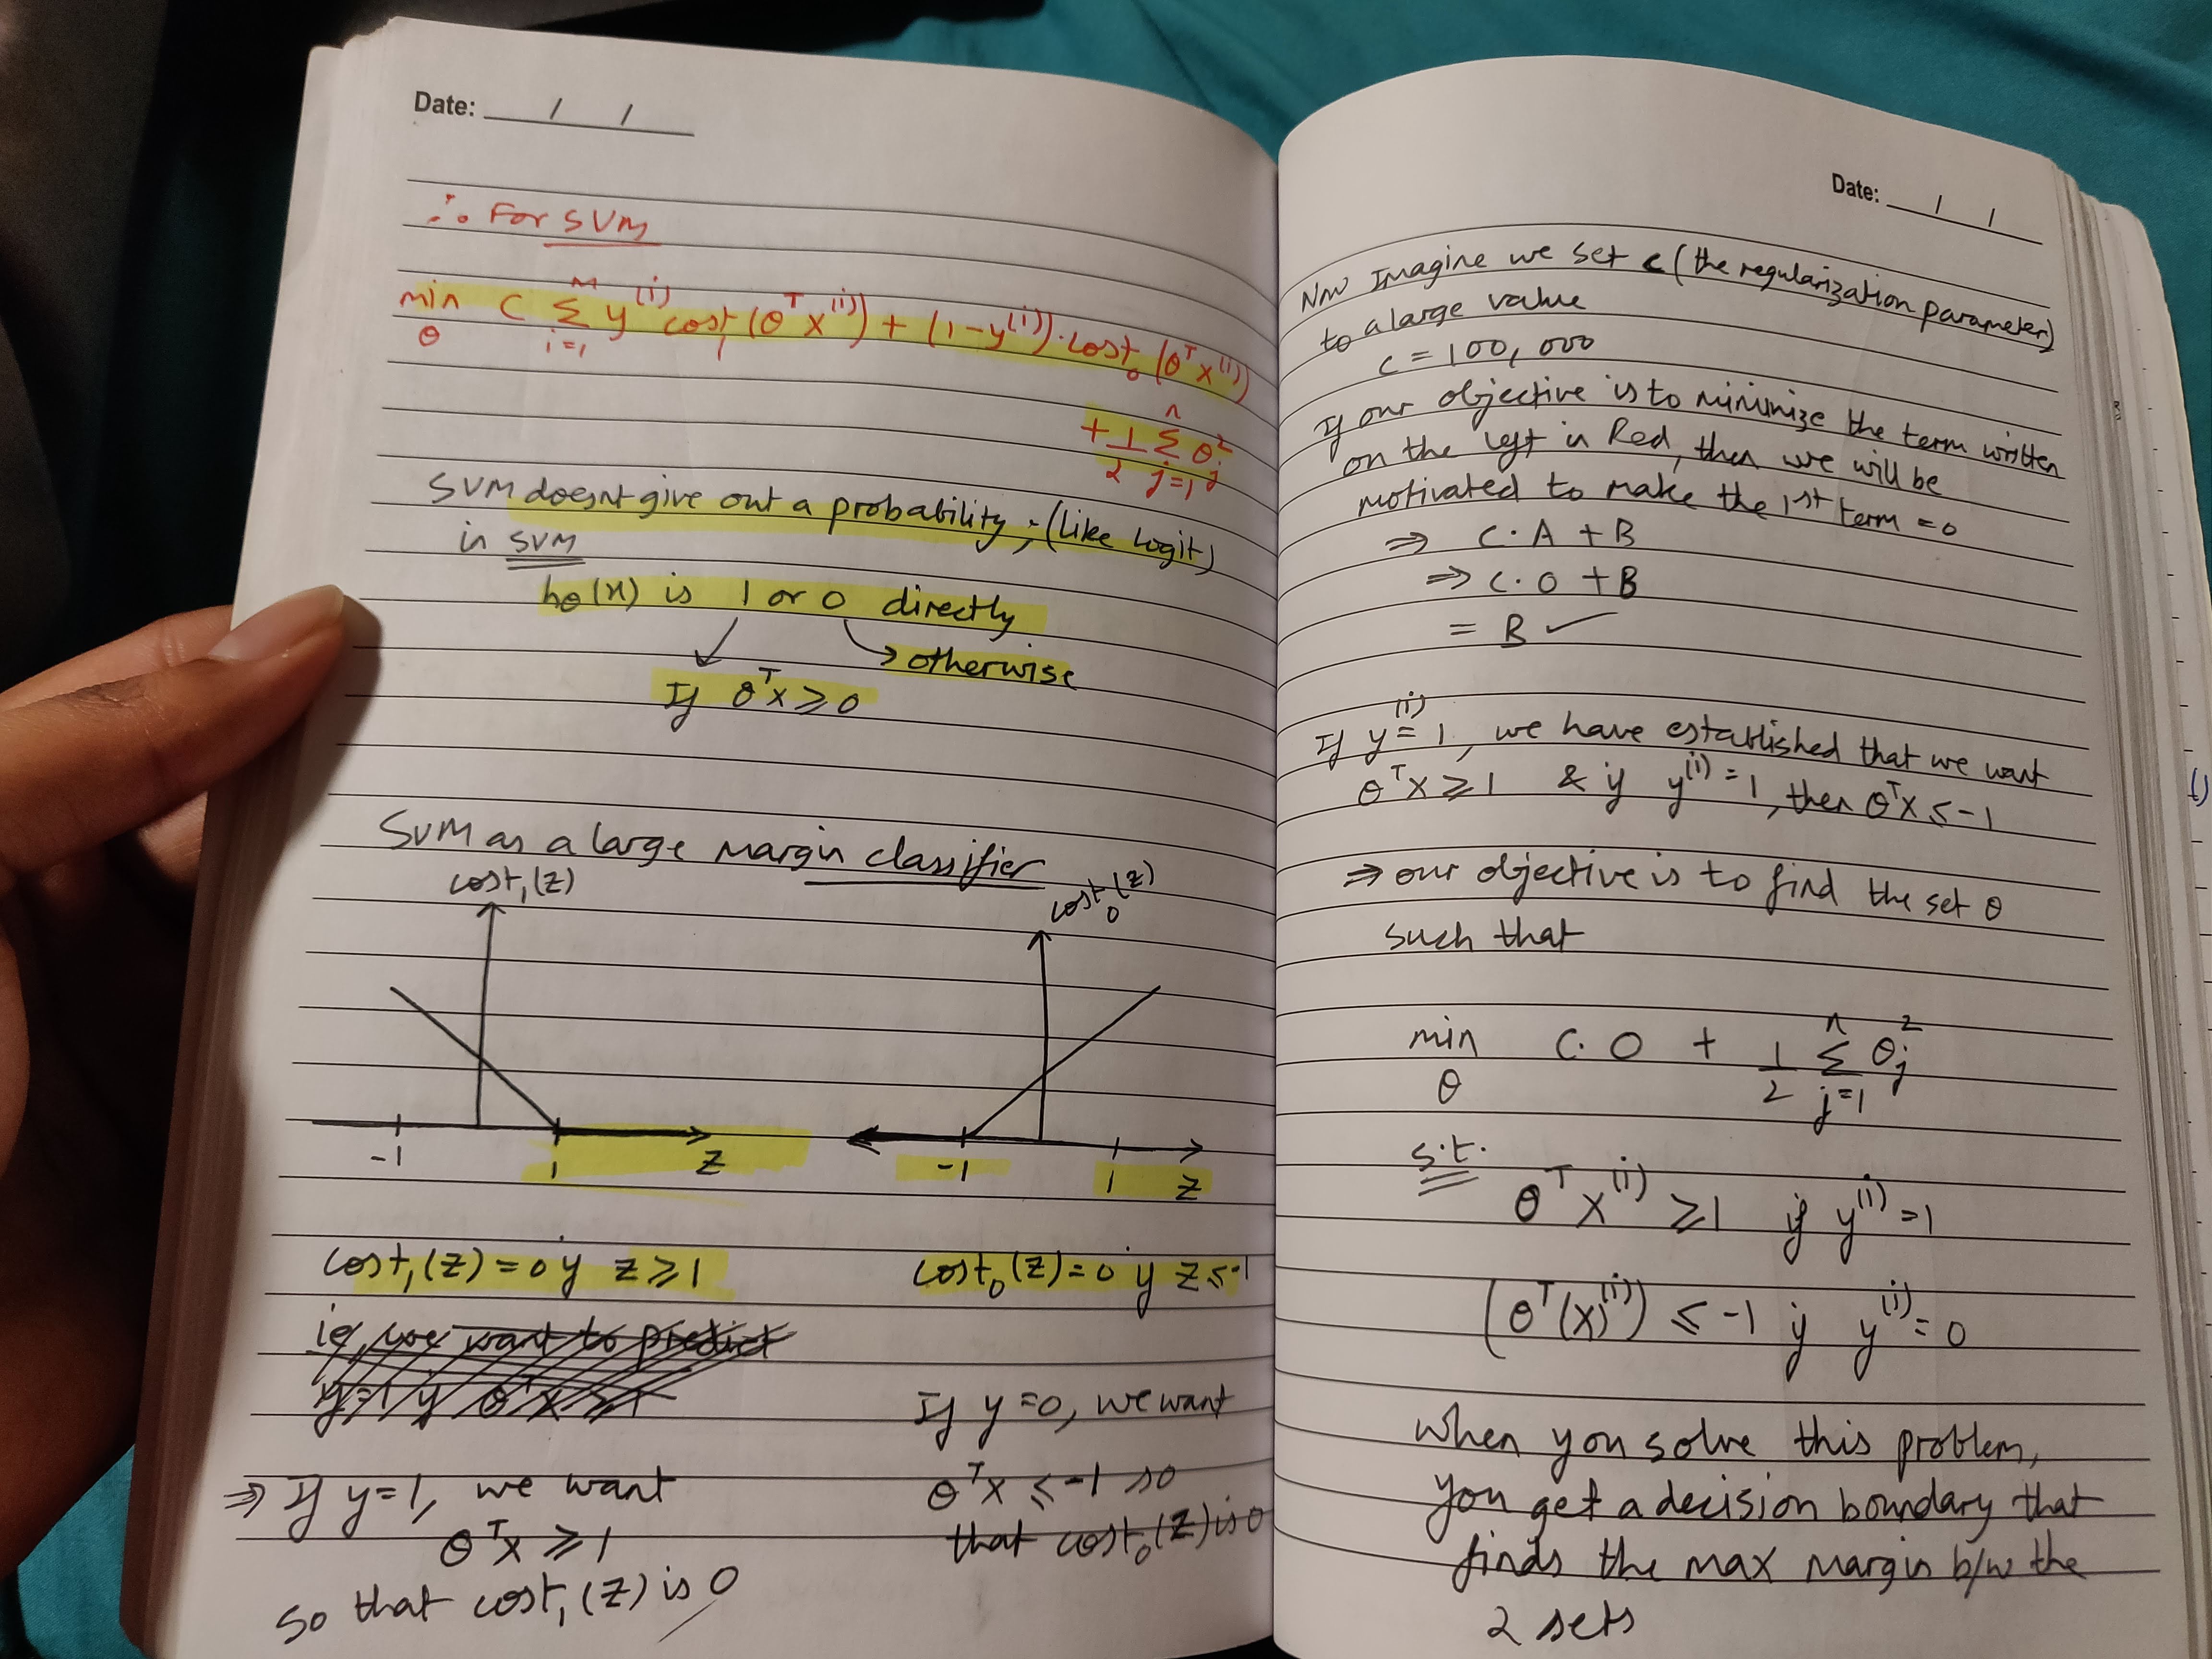 Date: / /
∴ For SVM
min θ C Σ i=1 m y(i) cost1 (θᵀx(i)) + (1-y(i)).cost0 (θᵀx(i))
+ 1/2 Σ j=1 n θj²
SVM doesnt give out a probability, (like logit)
in SVM
hθ(x) is 1 or 0 directly
otherwise
If θᵀx ≥ 0
SVM as a large margin classifier
cost1(z) cost0(z)
-1 1 z -1 1 z
cost1(z) = 0 if z ≥ 1 cost0(z) = 0 if z ≤ -1
ie, we want to predict
y=1 if θᵀx ≥ 1
If y=0, we want
⇒ If y=1, we want
θᵀx ≤ -1 so
θᵀx ≥ 1
that cost0(z) is 0
so that cost1(z) is 0
Date: / /
Now Imagine we set c (the regularization parameter)
to a large value
c = 100,000
If our objective is to minimize the term written
on the left in Red, then we will be
motivated to make the 1st term = 0
⇒ C.A + B
⇒ C.0 + B
= B ✓
If y(i) = 1, we have established that we want
θᵀx ≥ 1 & if y(i) = 1, then θᵀx ≤ -1
⇒ our objective is to find the set θ
such that
min θ C.0 + 1/2 Σ j=1 n θj²
s.t.
θᵀx(i) ≥ 1 if y(i) = 1
(θᵀ(x)(i)) ≤ -1 if y(i) = 0
When you solve this problem,
you get a decision boundary that
finds the max margin b/w the
2 sets